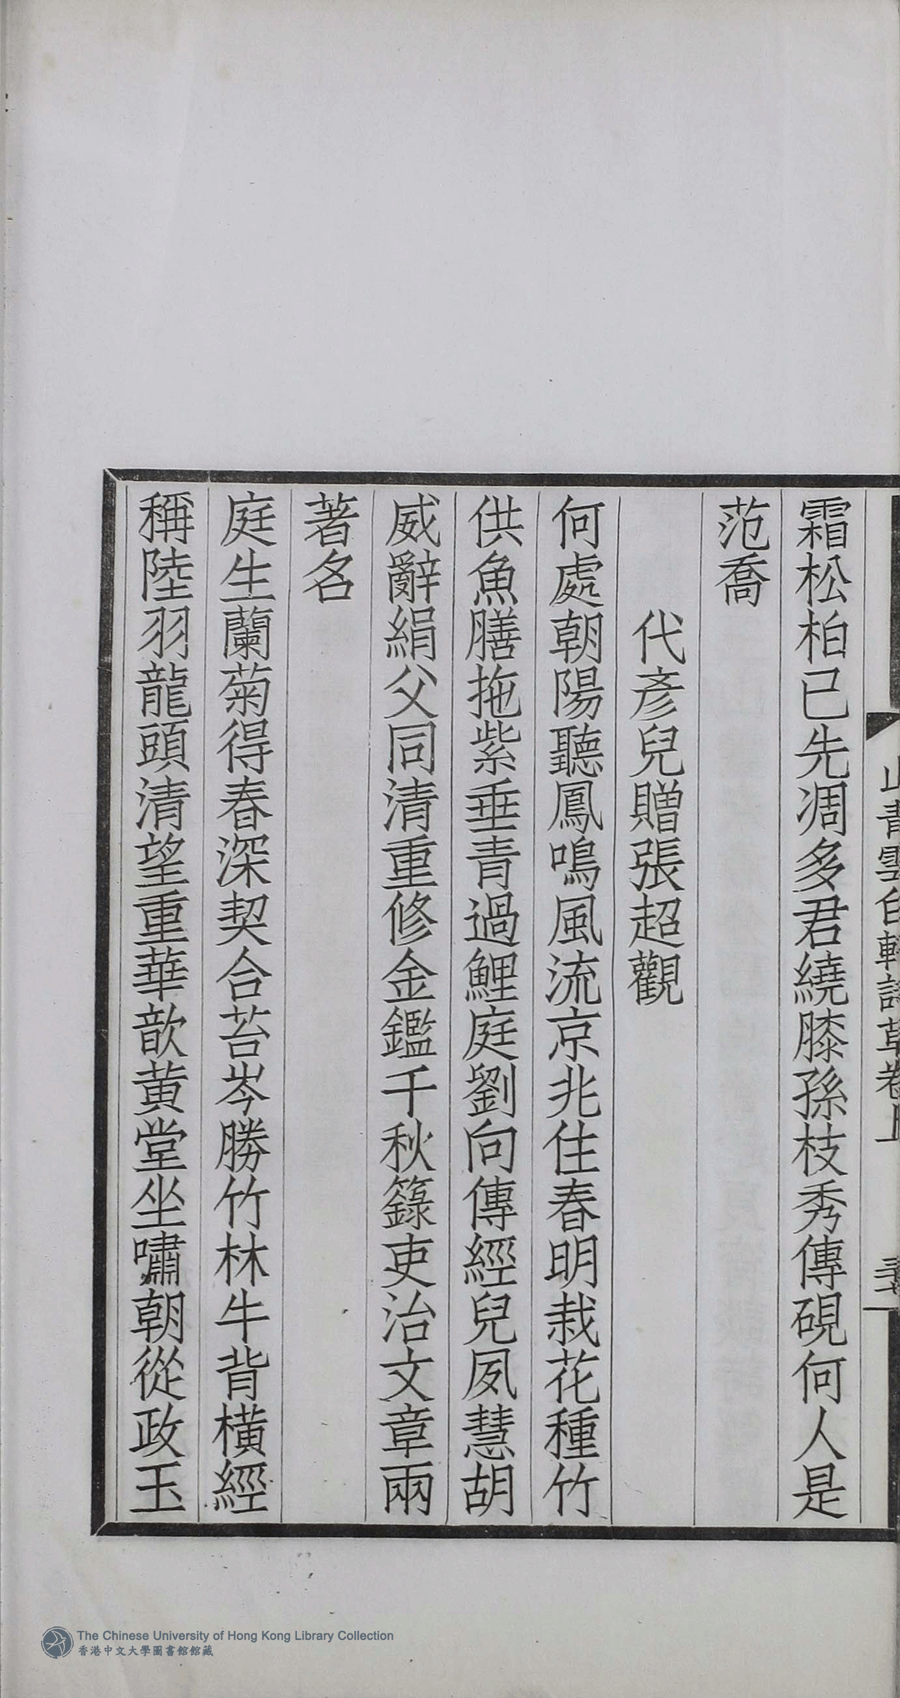 山青雲白軒詩草卷上
霜松柏已先凋多君繞膝孫枝秀傳硯何人是
范喬
代彥兒贈張超觀
何處朝陽聽鳳鳴風流京兆住春明栽花種竹
供魚膳拖紫垂青過鯉庭劉向傳經兒夙慧胡
威辭絹父同清重修金鑑千秋籙吏治文章兩
著名
庭生蘭菊得春深契合苔岑勝竹林牛背橫經
稱陸羽龍頭清望重華歆黃堂坐嘯朝從政玉
The Chinese University of Hong Kong Library Collection
香港中文大學圖書館館藏